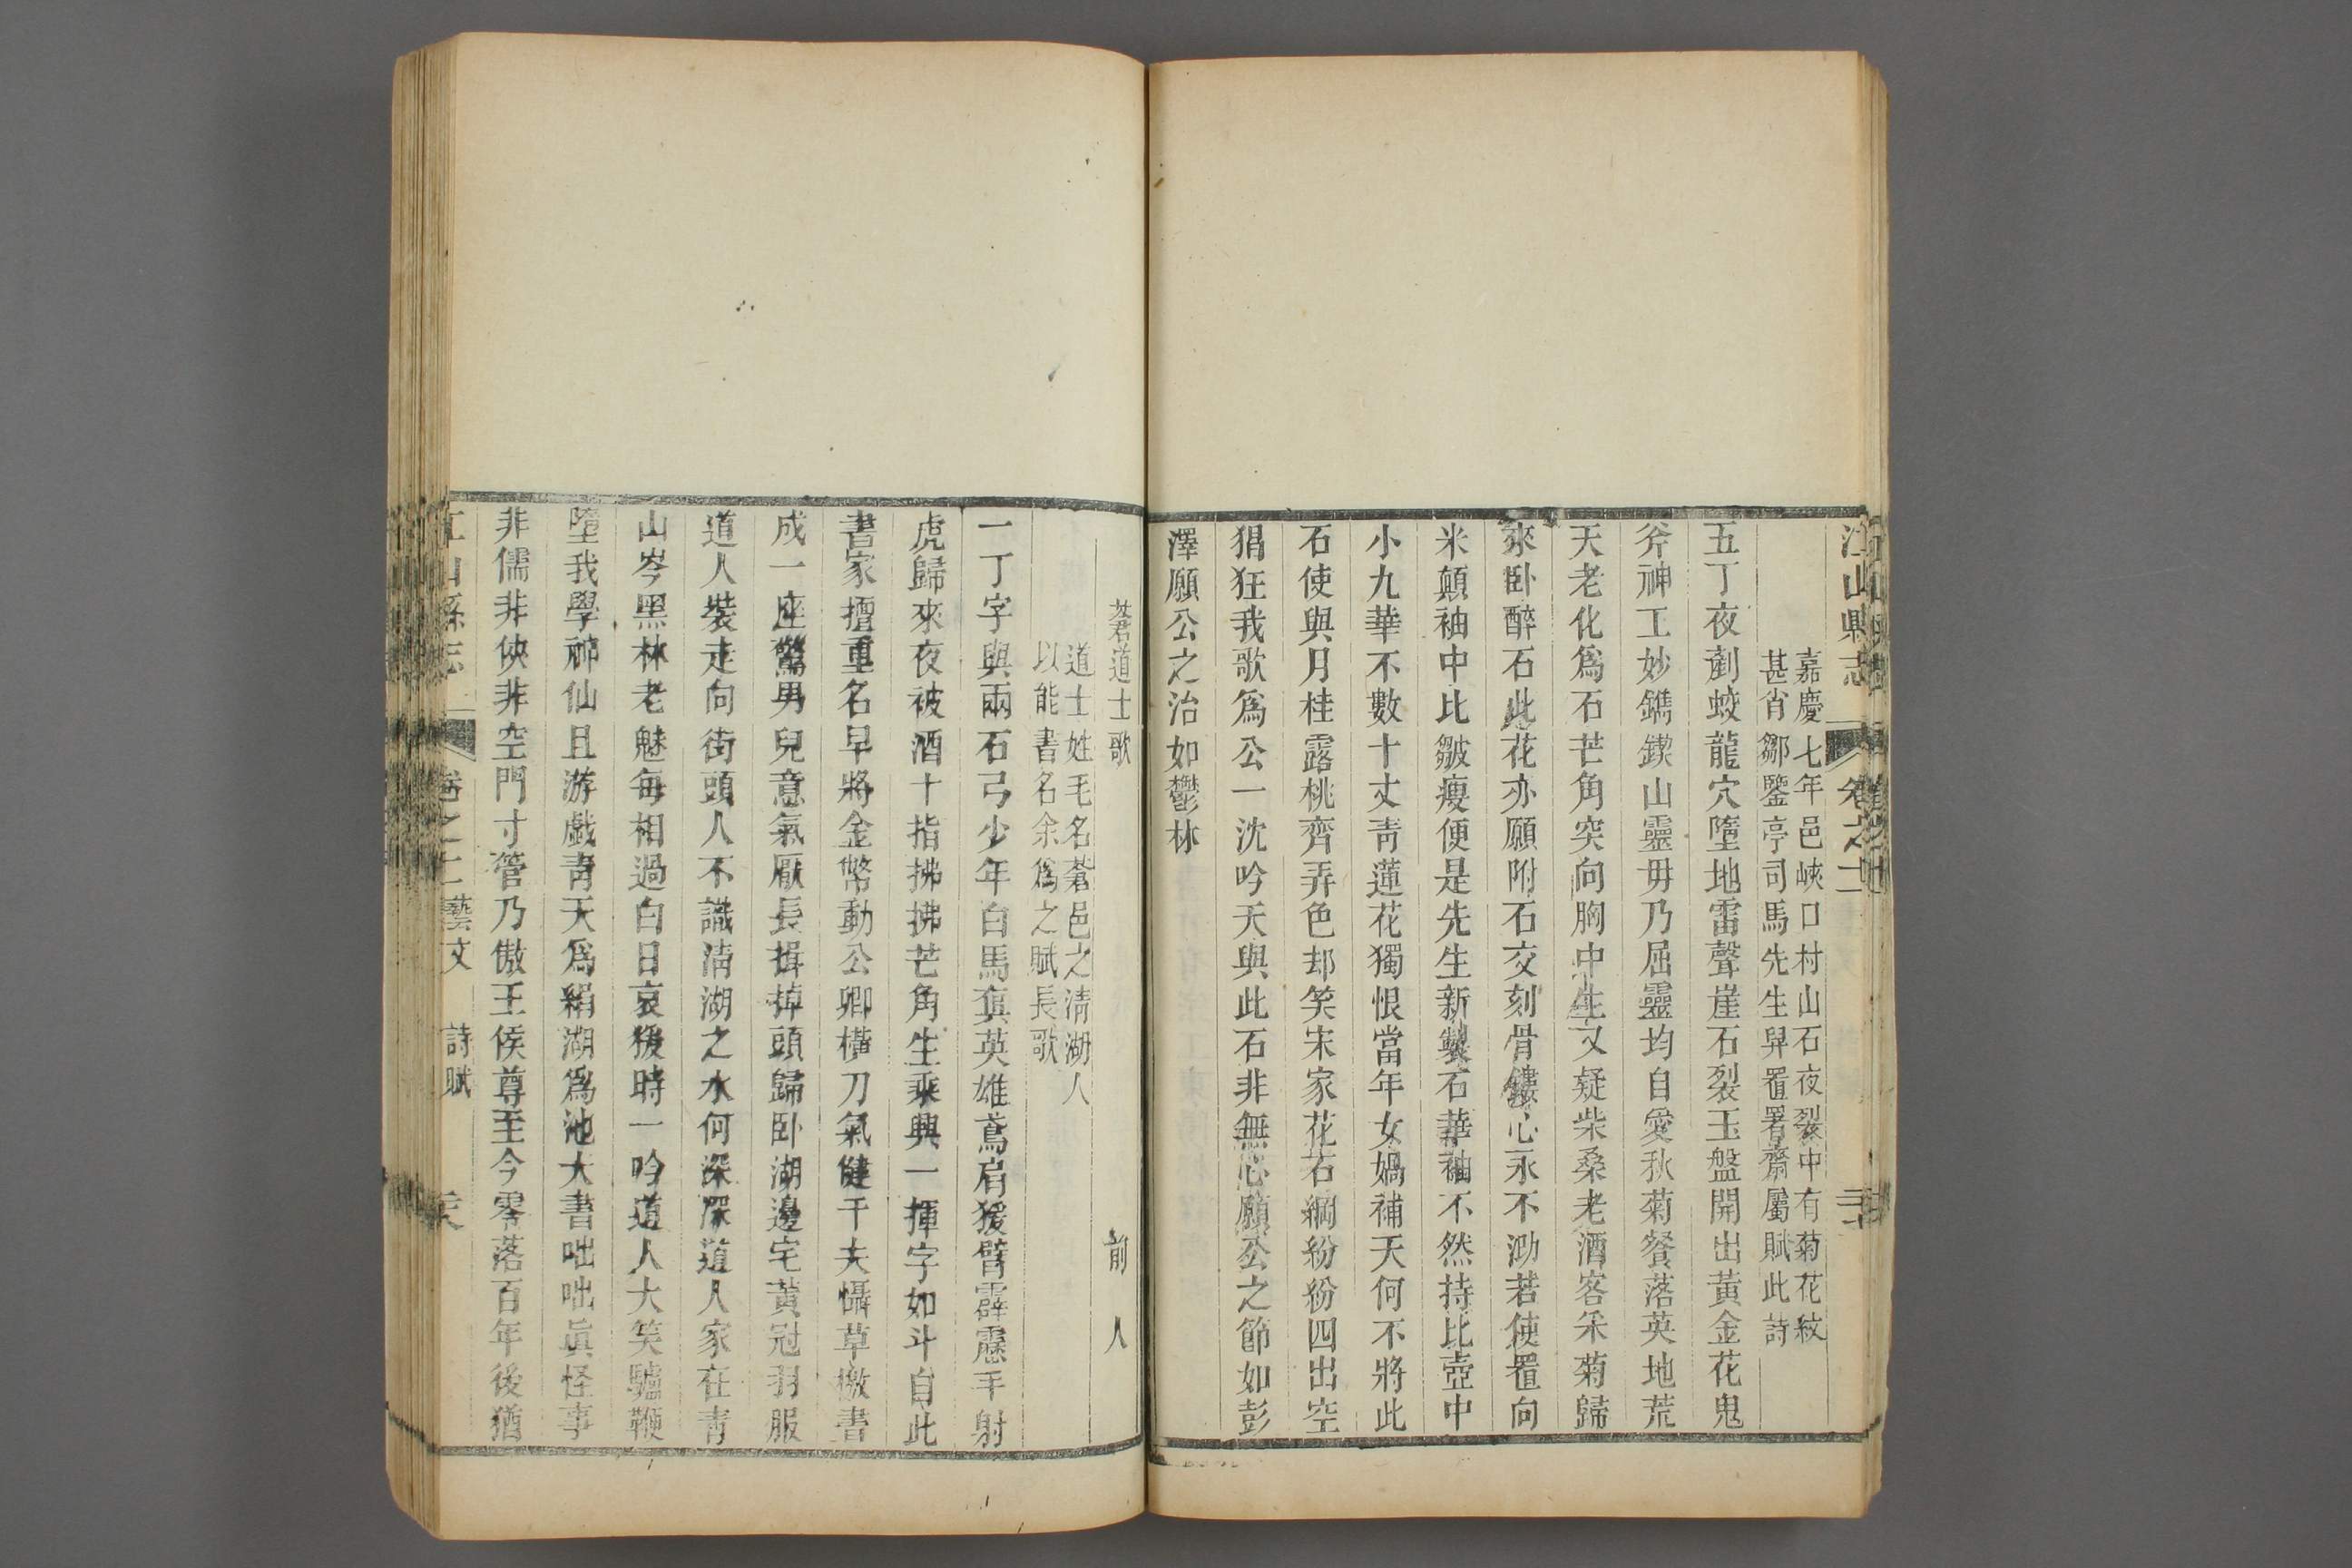 江山縣志 卷之十一
嘉慶七年邑峽口村山石夜裂中有菊花紋
甚省鄒鑒亭司馬先生舁置署齋屬賦此詩
五丁夜剷蛟龍穴墮地雷聲崖石裂玉盤開出黃金花鬼
斧神工妙鐫鍥山靈毋乃屈靈均自愛秋菊餐落英地荒
天老化爲石芒角突向胸中生又疑柴桑老酒客采菊歸
來卧醉石此花亦願附石交刻骨鏤心永不泐若使置向
米顛袖中比皺瘦便是先生新製石華袖不然持比壺中
小九華不數十丈靑蓮花獨恨當年女媧補天何不將此
石使與月桂露桃齊弄色却笑宋家花石綱紛紛四出空
猖狂我歌爲公一沈吟天與此石非無心願公之節如彭
澤願公之治如鬱林
蒼道士歌 前人
道士姓毛名蒼邑之清湖人
以能書名余爲之賦長歌
一丁字與兩石弓少年白馬眞英雄鳶肩猨臂霹靂手射
虎歸來夜被酒十指拂拂芒角生乘興一揮字如斗自此
書家擅重名早將金幣動公卿橫刀氣健千夫懾草檄書
成一座驚男兒意氣厭長揖掉頭歸卧湖邊宅黃冠羽服
道人裝走向街頭人不識清湖之水何深深道人家在靑
山岑黑林老魅每相過白日哀猨時一吟道人大笑驢鞭
墮我學神仙且游戲靑天爲絹湖爲池大書咄咄眞怪事
非儒非俠非空門寸管乃傲王侯尊至今零落百年後猶
江山縣志 卷之十一 藝文 詩賦